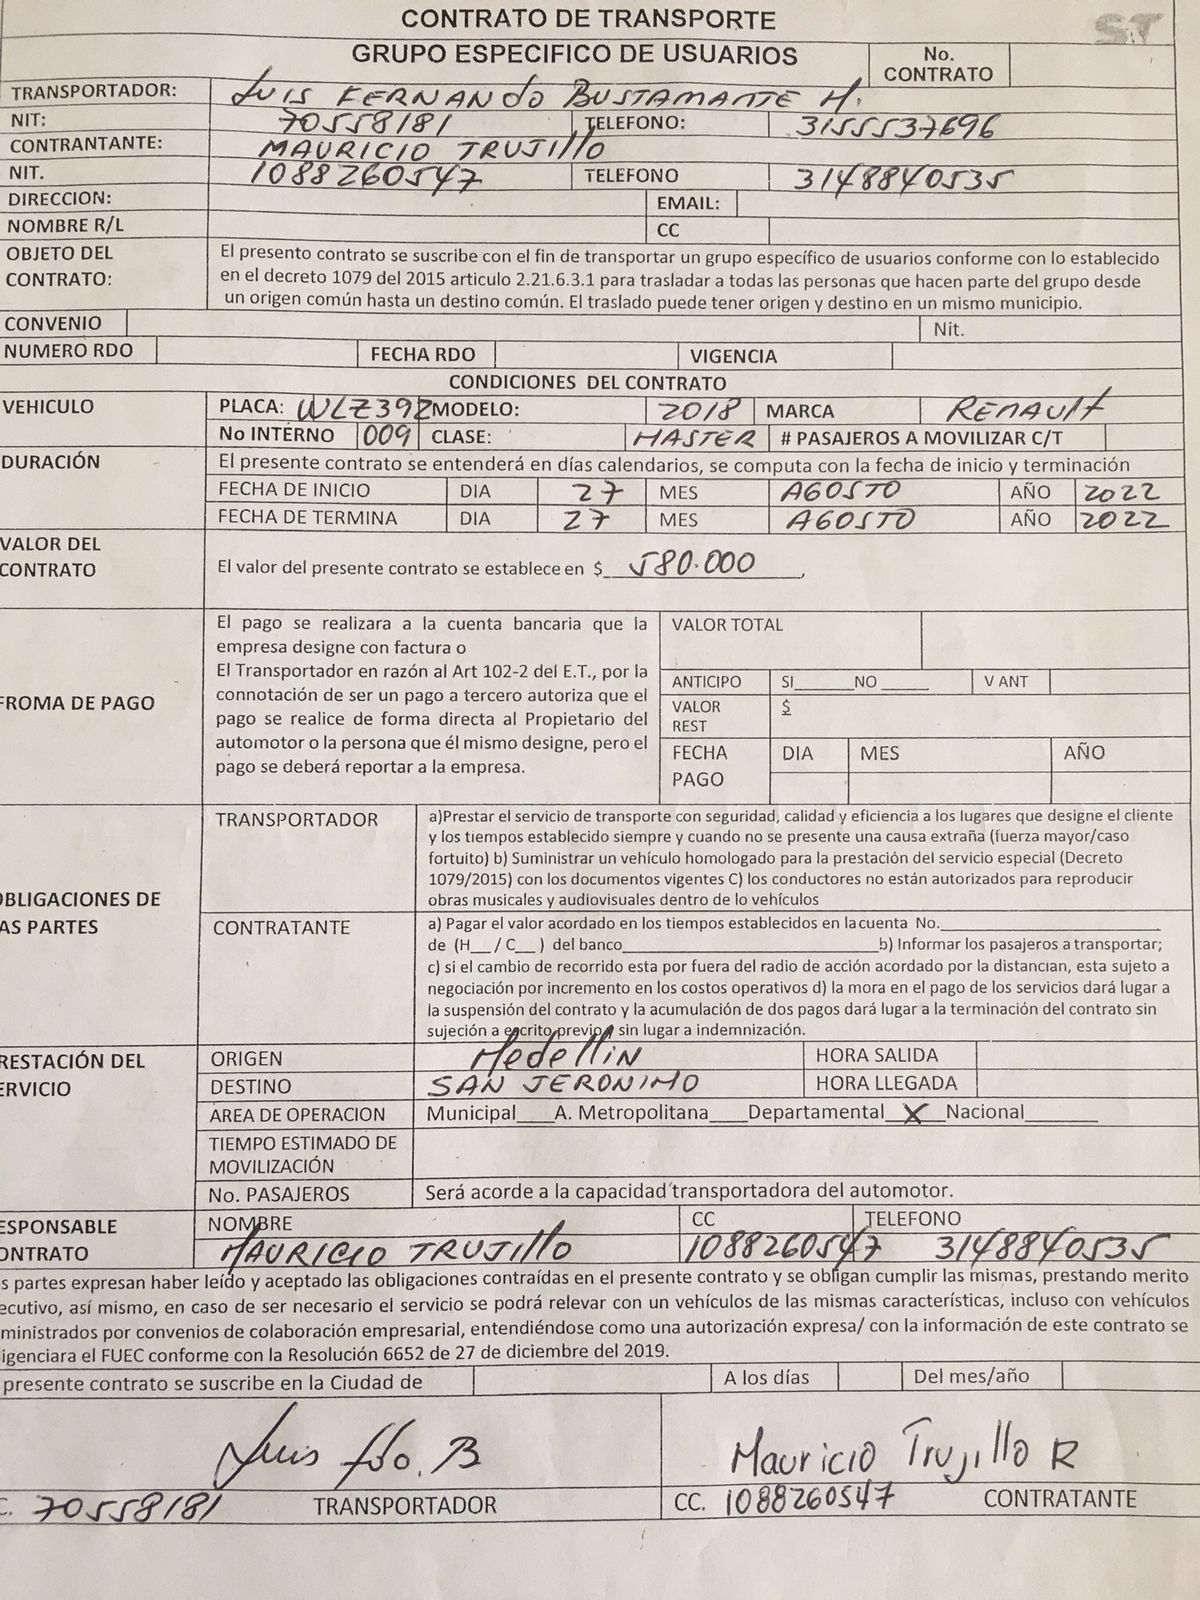 CONTRATO DE TRANSPORTE
S.T
GRUPO ESPECIFICO DE USUARIOS No. CONTRATO
TRANSPORTADOR: LUIS FERNANDO BUSTAMANTE H.
NIT: 70558181 TELEFONO: 3155537696
CONTRANTANTE: MAURICIO TRUJILLO
NIT. 1088260547 TELEFONO 3148840535
DIRECCION: EMAIL:
NOMBRE R/L CC
OBJETO DEL CONTRATO:
El presento contrato se suscribe con el fin de transportar un grupo específico de usuarios conforme con lo establecido
en el decreto 1079 del 2015 articulo 2.21.6.3.1 para trasladar a todas las personas que hacen parte del grupo desde
un origen común hasta un destino común. El traslado puede tener origen y destino en un mismo municipio.
CONVENIO Nit.
NUMERO RDO FECHA RDO VIGENCIA
CONDICIONES DEL CONTRATO
VEHICULO PLACA: WLZ392 MODELO: 2018 MARCA RENAULT
No INTERNO 009 CLASE: MASTER # PASAJEROS A MOVILIZAR C/T
DURACIÓN El presente contrato se entenderá en días calendarios, se computa con la fecha de inicio y terminación
FECHA DE INICIO DIA 27 MES AGOSTO AÑO 2022
FECHA DE TERMINA DIA 27 MES AGOSTO AÑO 2022
VALOR DEL
CONTRATO El valor del presente contrato se establece en $ 580.000,
FROMA DE PAGO
El pago se realizara a la cuenta bancaria que la
empresa designe con factura o
El Transportador en razón al Art 102-2 del E.T., por la
connotación de ser un pago a tercero autoriza que el
pago se realice de forma directa al Propietario del
automotor o la persona que él mismo designe, pero el
pago se deberá reportar a la empresa.
VALOR TOTAL
ANTICIPO SI______NO _____ V ANT
VALOR REST $
FECHA PAGO DIA MES AÑO
OBLIGACIONES DE
AS PARTES
TRANSPORTADOR
a)Prestar el servicio de transporte con seguridad, calidad y eficiencia a los lugares que designe el cliente
y los tiempos establecido siempre y cuando no se presente una causa extraña (fuerza mayor/caso
fortuito) b) Suministrar un vehículo homologado para la prestación del servicio especial (Decreto
1079/2015) con los documentos vigentes C) los conductores no están autorizados para reproducir
obras musicales y audiovisuales dentro de lo vehículos
CONTRATANTE
a) Pagar el valor acordado en los tiempos establecidos en la cuenta No.______________________
de (H__ / C__ ) del banco__________________________b) Informar los pasajeros a transportar;
c) si el cambio de recorrido esta por fuera del radio de acción acordado por la distancian, esta sujeto a
negociación por incremento en los costos operativos d) la mora en el pago de los servicios dará lugar a
la suspensión del contrato y la acumulación de dos pagos dará lugar a la terminación del contrato sin
sujeción a escrito previo, sin lugar a indemnización.
RESTACIÓN DEL
ERVICIO
ORIGEN Medellin HORA SALIDA
DESTINO SAN JERONIMO HORA LLEGADA
ÁREA DE OPERACION Municipal____A. Metropolitana____Departamental__X__Nacional_______
TIEMPO ESTIMADO DE
MOVILIZACIÓN
No. PASAJEROS Será acorde a la capacidad transportadora del automotor.
ESPONSABLE
ONTRATO
NOMBRE CC TELEFONO
MAURICIO TRUJILLO 1088260547 3148840535
s partes expresan haber leído y aceptado las obligaciones contraídas en el presente contrato y se obligan cumplir las mismas, prestando merito
ecutivo, así mismo, en caso de ser necesario el servicio se podrá relevar con un vehículos de las mismas características, incluso con vehículos
ministrados por convenios de colaboración empresarial, entendiéndose como una autorización expresa/ con la información de este contrato se
igenciara el FUEC conforme con la Resolución 6652 de 27 de diciembre del 2019.
presente contrato se suscribe en la Ciudad de A los días Del mes/año
Luis Fdo. B
Mauricio Trujillo R
C. 70558181 TRANSPORTADOR CC. 1088260547 CONTRATANTE